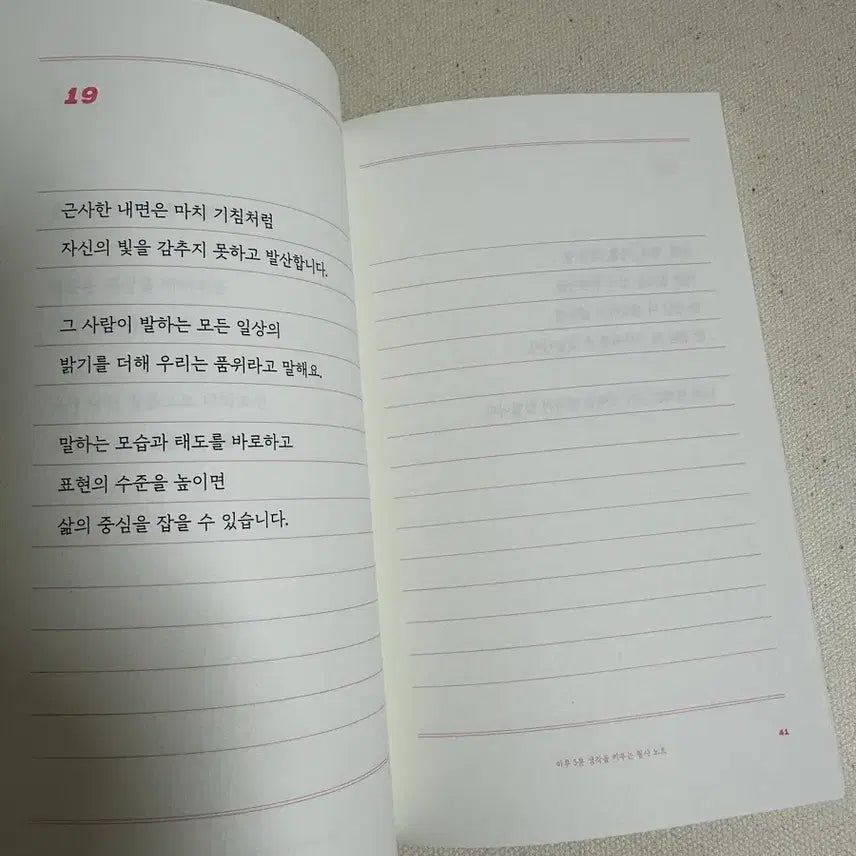 19
근사한 내면은 마치 기침처럼
자신의 빛을 감추지 못하고 발산합니다.
그 사람이 발하는 모든 일상의
밝기를 더해 우리는 품위라고 말해요.
말하는 모습과 태도를 바로하고
표현의 수준을 높이면
삶의 중심을 잡을 수 있습니다.
41
하루 5분 생각을 키우는 필사 노트